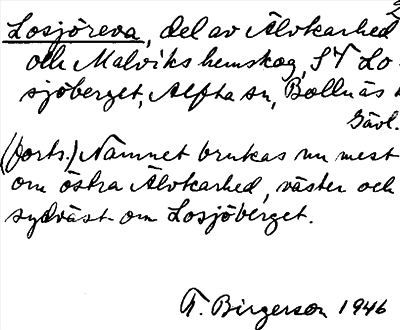 2
Losjöreva, del av Älvkarhed
och Malviks hemskog, SV Lo-
sjöberget, Alfta sn, Bollnäs
Gävl.
(forts.) Namnet brukas nu mest
om östra Älvkarhed, väster och
sydväst om Losjöberget.
T. Birgerson 1946